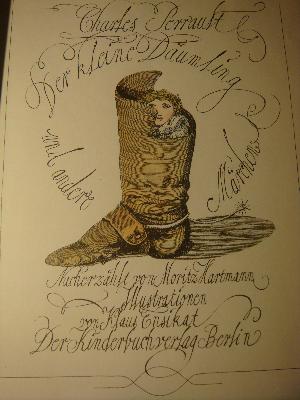 Charles Perrault
Der kleine Däumling
und andere
Märchen
Nacherzählt von Moritz Hartmann
Illustrationen
von Klaus Ensikat
Der Kinderbuchverlag Berlin